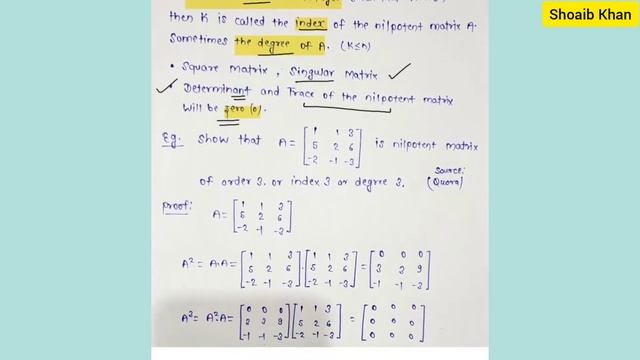 Shoaib Khan
then K is called the index of the nilpotent matrix A.
Sometimes the degree of A. (K≤n)
• Square matrix, Singular matrix ✓
✓ • Determinant and Trace of the nilpotent matrix
will be zero (0).
Eg. Show that A = [1 1 3; 5 2 6; -2 -1 -3] is nilpotent matrix
of order 3, or index 3 or degree 3. Source: (Quora)
Proof: A = [1 1 3; 5 2 6; -2 -1 -3]
A² = A·A = [1 1 3; 5 2 6; -2 -1 -3] · [1 1 3; 5 2 6; -2 -1 -3] = [0 0 0; 3 3 9; -1 -1 -3]
A³ = A²·A = [0 0 0; 3 3 9; -1 -1 -3] [1 1 3; 5 2 6; -2 -1 -3] = [0 0 0; 0 0 0; 0 0 0]